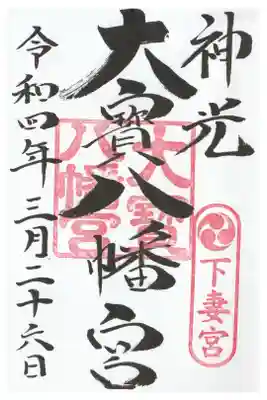 神光
下妻宮
大寶八幡宮
大寶八幡宮
令和四年三月二十六日